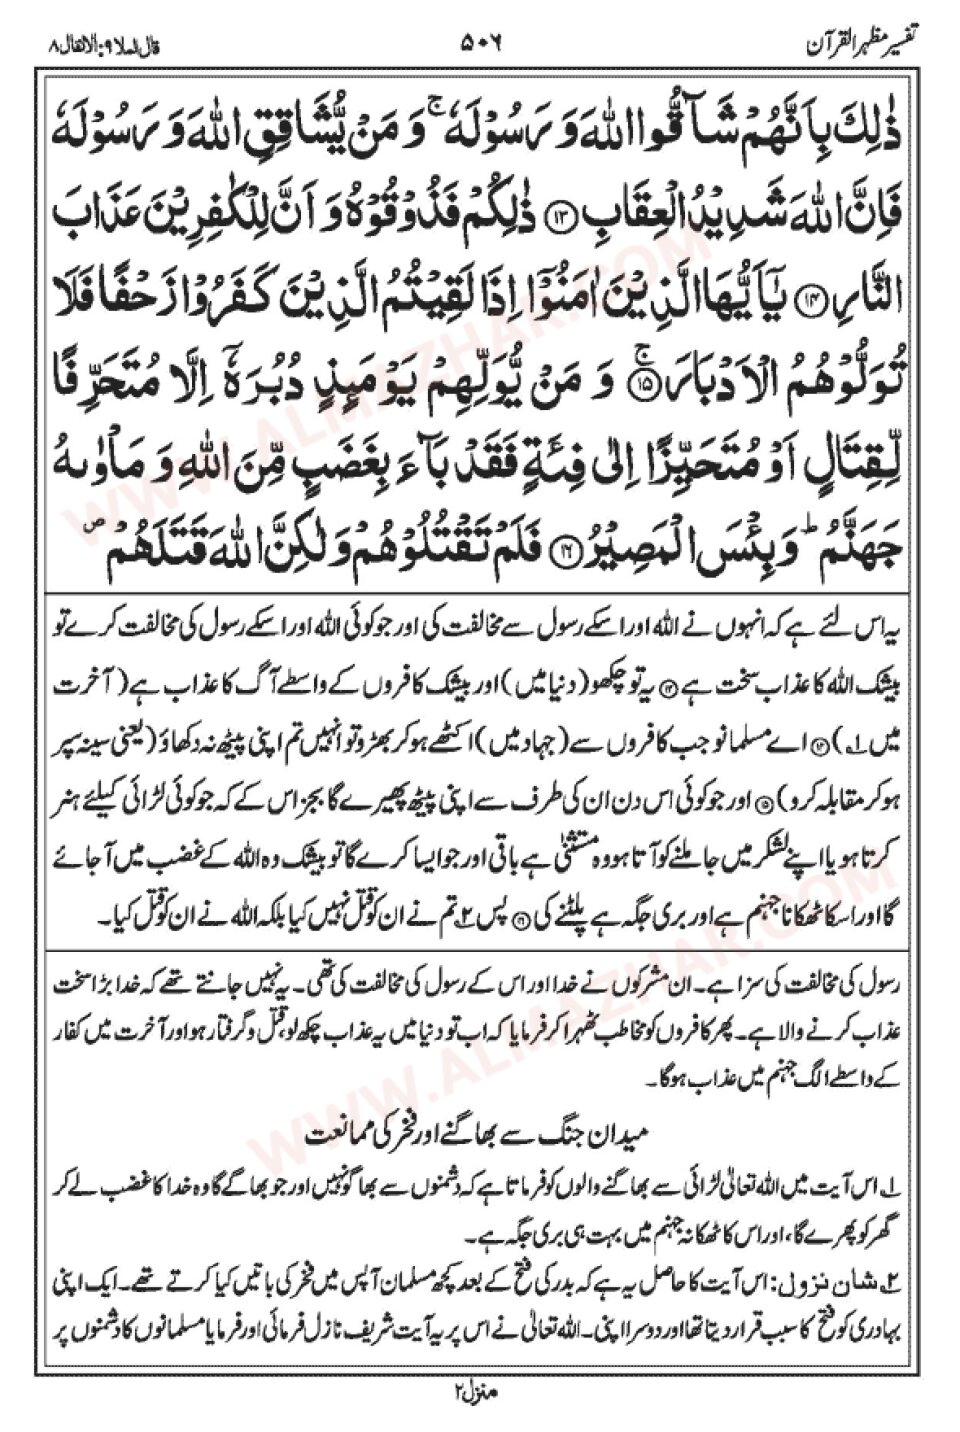 تفسیر مظہر القرآن
۵۰۶
قال الملا ۹: الانفال ۸
ذٰلِكَ بِاَنَّهُمْ شَآقُّوا اللّٰهَ وَ رَسُوْلَهٗ ۚ وَ مَنْ يُّشَاقِقِ اللّٰهَ وَ رَسُوْلَهٗ
فَاِنَّ اللّٰهَ شَدِيْدُ الْعِقَابِ ۝۱۳ ذٰلِكُمْ فَذُوْقُوْهُ وَ اَنَّ لِلْكٰفِرِيْنَ عَذَابَ
النَّارِ ۝۱۴ يٰۤاَيُّهَا الَّذِيْنَ اٰمَنُوْۤا اِذَا لَقِيْتُمُ الَّذِيْنَ كَفَرُوْا زَحْفًا فَلَا
تُوَلُّوْهُمُ الْاَدْبَارَ ۝۱۵ۚ وَ مَنْ يُّوَلِّهِمْ يَوْمَىِٕذٍ دُبُرَهٗۤ اِلَّا مُتَحَرِّفًا
لِّقِتَالٍ اَوْ مُتَحَيِّزًا اِلٰى فِئَةٍ فَقَدْ بَآءَ بِغَضَبٍ مِّنَ اللّٰهِ وَ مَاْوٰىهُ
جَهَنَّمُ ؕ وَ بِئْسَ الْمَصِيْرُ ۝۱۶ فَلَمْ تَقْتُلُوْهُمْ وَ لٰكِنَّ اللّٰهَ قَتَلَهُمْ ۪
یہ اس لئے ہے کہ انہوں نے اللہ اور اسکے رسول سے مخالفت کی اور جو کوئی اللہ اور اسکے رسول کی مخالفت کرے تو
بیشک اللہ کا عذاب سخت ہے ۝۱۳ یہ تو چکھو (دنیا میں) اور بیشک کافروں کے واسطے آگ کا عذاب ہے (آخرت
میں ۱؎) ۝۱۴ اے مسلمانو جب کافروں سے (جہاد میں) اکٹھے ہو کر بھڑو تو انہیں تم اپنی پیٹھ نہ دکھاؤ (یعنی سینہ سپر
ہو کر مقابلہ کرو) ۝۱۵ اور جو کوئی اس دن ان کی طرف سے اپنی پیٹھ پھیرے گا بجز اس کے کہ جو کوئی لڑائی کیلئے ہنر
کرتا ہو یا اپنے لشکر میں جا ملنے کو آتا ہو وہ مستثنیٰ ہے باقی اور جو ایسا کرے گا تو بیشک وہ اللہ کے غضب میں آ جائے
گا اور اسکا ٹھکانا جہنم ہے اور بری جگہ ہے پلٹنے کی ۝۱۶ پس ۲؎ تم نے ان کو قتل نہیں کیا بلکہ اللہ نے ان کو قتل کیا۔
رسول کی مخالفت کی سزا ہے۔ ان مشرکوں نے خدا اور اس کے رسول کی مخالفت کی تھی۔ یہ نہیں جانتے تھے کہ خدا بڑا سخت
عذاب کرنے والا ہے۔ پھر کافروں کو مخاطب ٹھہرا کر فرمایا کہ اب تو دنیا میں یہ عذاب چکھ لو، قتل و گرفتار ہو اور آخرت میں کفار
کے واسطے الگ جہنم میں عذاب ہوگا۔
میدان جنگ سے بھاگنے اور فخر کی ممانعت
۱؎ اس آیت میں اللہ تعالیٰ لڑائی سے بھاگنے والوں کو فرماتا ہے کہ دشمنوں سے بھاگو نہیں اور جو بھاگے گا وہ خدا کا غضب لے کر
گھر کو پھرے گا، اور اس کا ٹھکانہ جہنم میں بہت ہی بری جگہ ہے۔
۲؎ شان نزول: اس آیت کا حاصل یہ ہے کہ بدر کی فتح کے بعد کچھ مسلمان آپس میں فخر کی باتیں کیا کرتے تھے۔ ایک اپنی
بہادری کو فتح کا سبب قرار دیتا تھا اور دوسرا اپنی۔ اللہ تعالیٰ نے اس پر یہ آیت شریف نازل فرمائی اور فرمایا مسلمانوں کا دشمنوں پر
منزل ۲
WWW.ALMAZHAR.COM
WWW.ALMAZHAR.COM